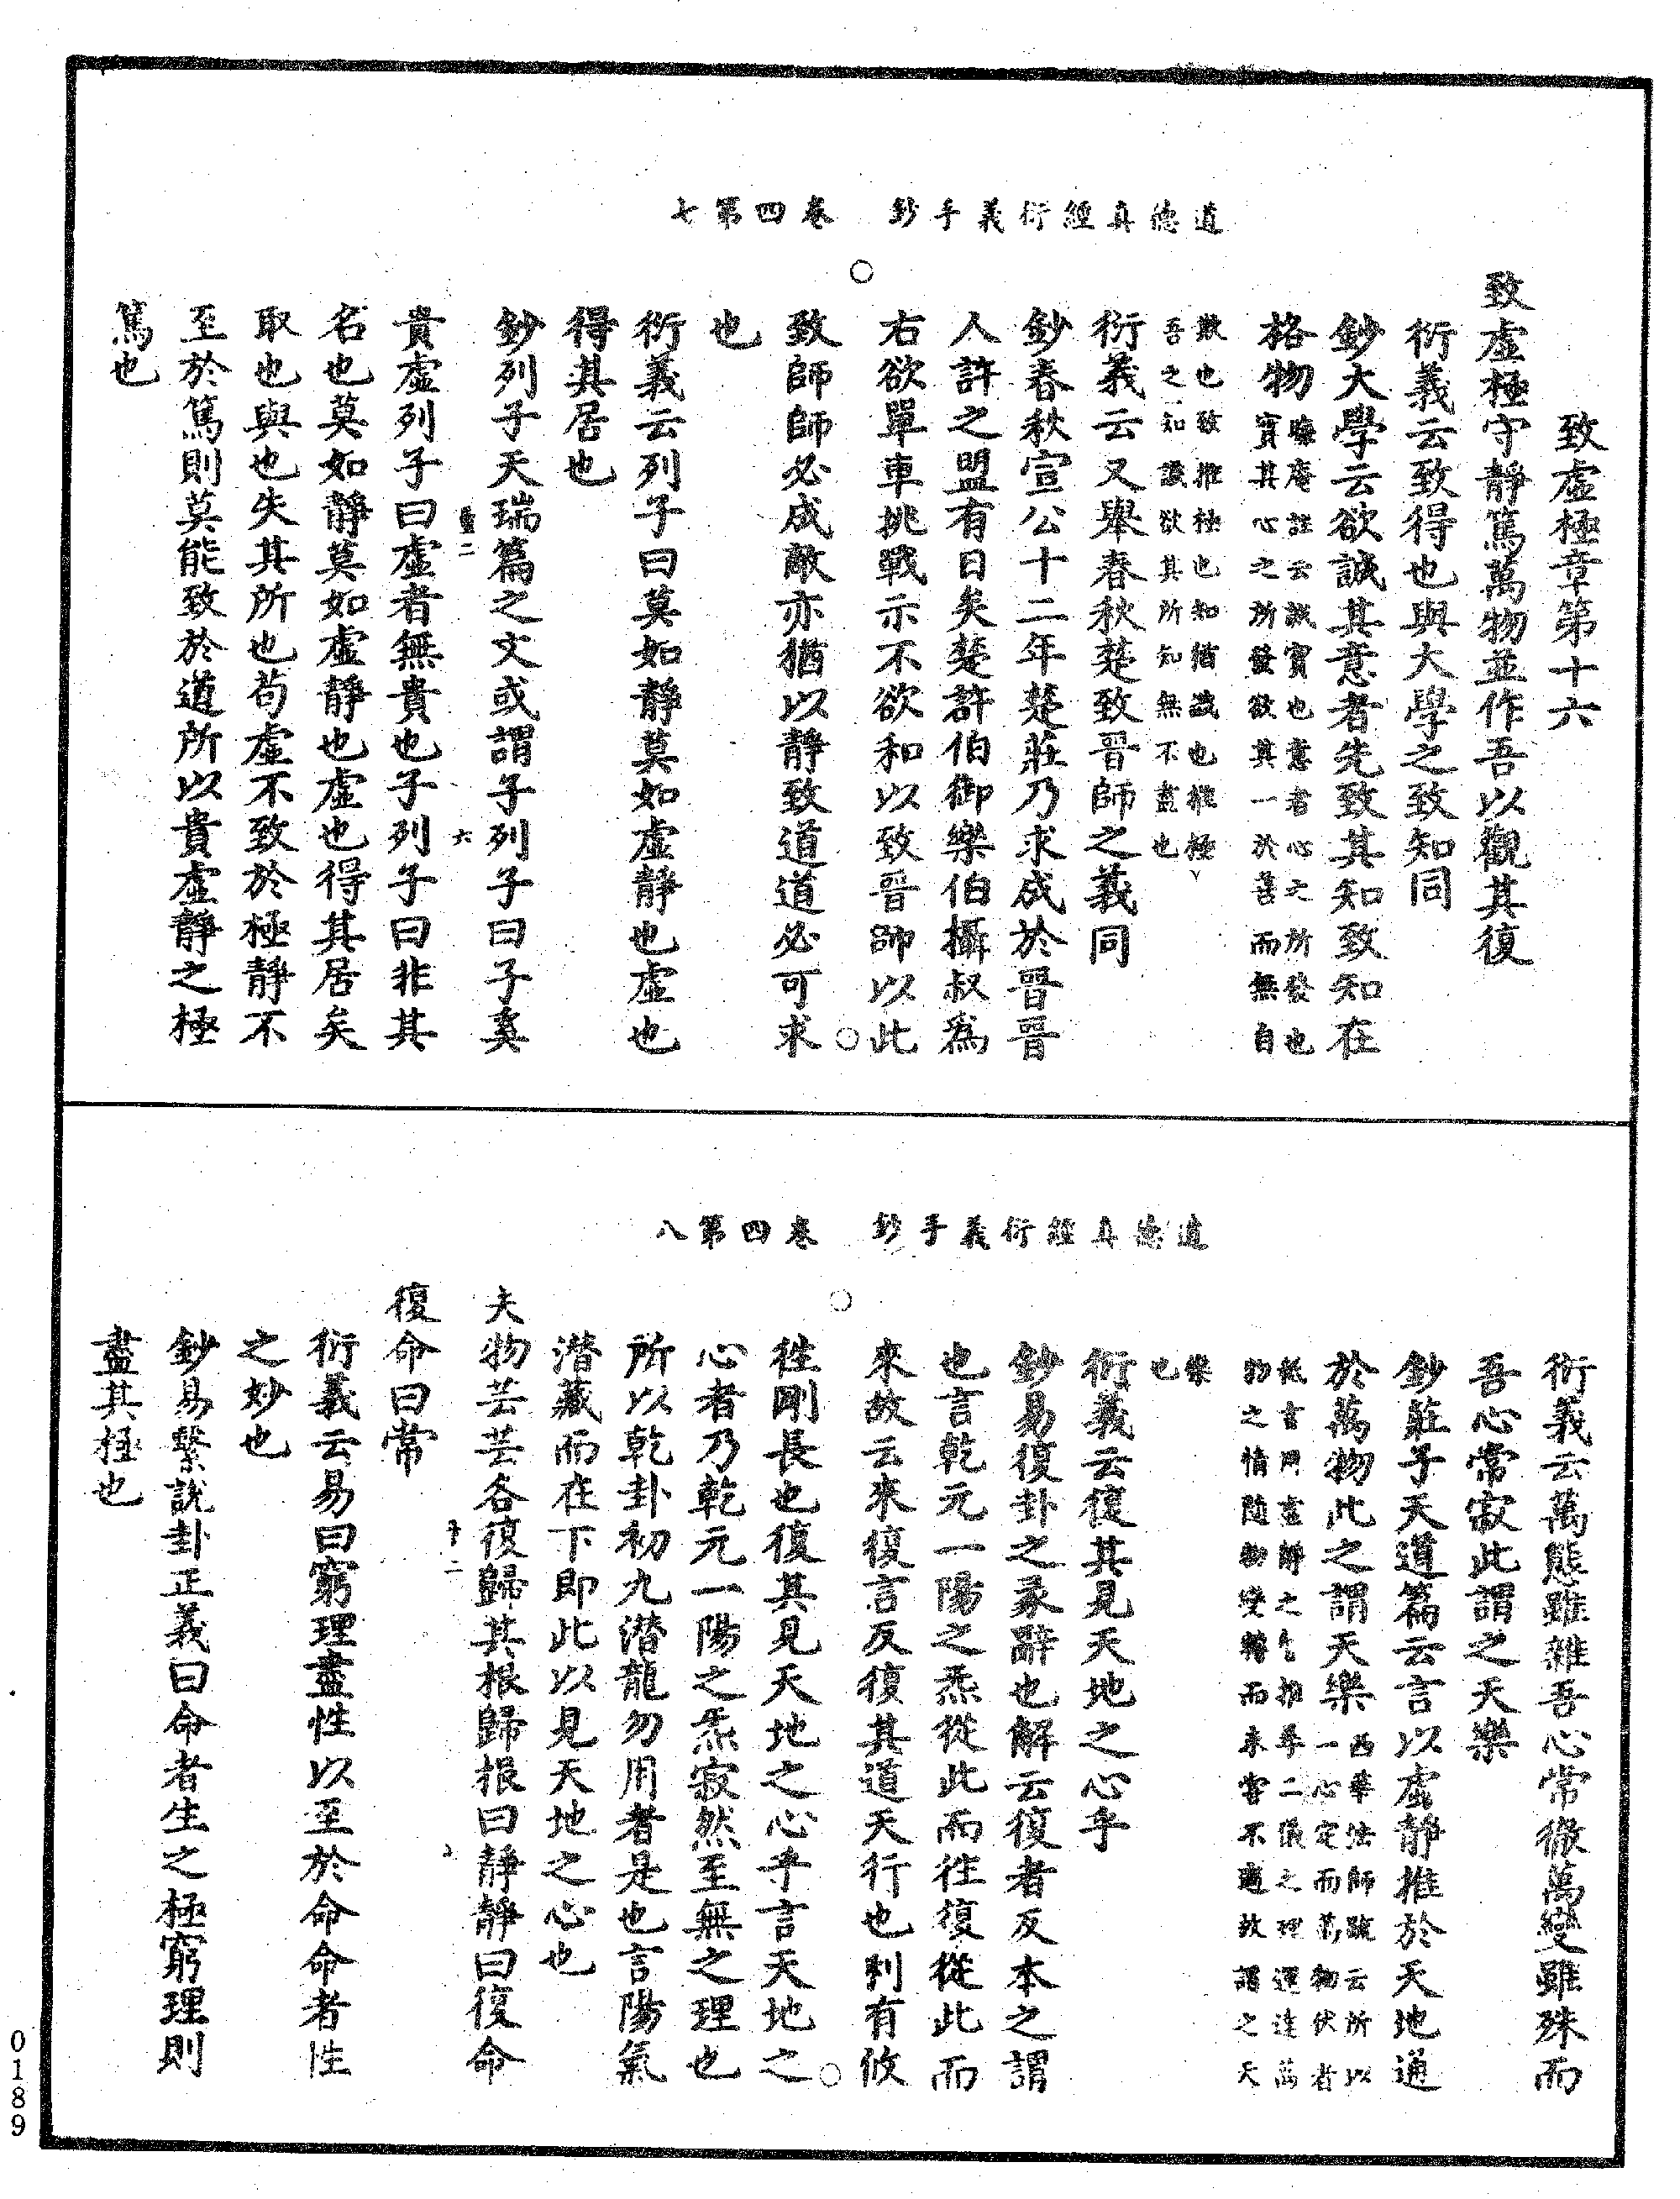 道德真經衍義手鈔　卷四第七
致虛極章第十六
致虛極守靜篤萬物並作吾以觀其復
衍義云致得也與大學之致知同
鈔大學云欲誠其意者先致其知致知在
格物晦庵註云誠實也意者心之所發也
實其心之所發欲其一於善而無自
欺也致推極也知猶識也推極
吾之知識欲其所知無不盡也
衍義云又舉春秋楚致晉師之義同
鈔春秋宣公十二年楚莊乃求成於晉晉
人許之盟有日矣楚許伯御樂伯攝叔為
右欲單車挑戰示不欲和以致晉師以此
致師師必成敵亦猶以靜致道道必可求
也
衍義云列子曰莫如靜莫如虛靜也虛也
得其居也
鈔列子天瑞篇之文或謂子列子曰子奚
貴虛列子曰虛者無貴也子列子曰非其
名也莫如靜莫如虛靜也虛也得其居矣
取也與也失其所也苟虛不致於極靜不
至於篤則莫能致於道所以貴虛靜之極
篤也
道德真經衍義手鈔　卷四第八
衍義云萬態雖雜吾心常徹萬變雖殊而
吾心常寂此謂之天樂
鈔莊子天道篇云言以虛靜推於天地通
於萬物此之謂天樂西華法師疏云所以
一心定而萬物伏者
秖言用虛靜之心推尋二儀之理通達萬
物之情隨物變轉而未嘗不適故謂之天
樂
也
衍義云復其見天地之心乎
鈔易復卦之彖辭也解云復者反本之謂
也言乾元一陽之炁從此而往復從此而
來故云來復言反復其道天行也利有攸
往剛長也復其見天地之心乎言天地之
心者乃乾元一陽之炁寂然至無之理也
所以乾卦初九潛龍勿用者是也言陽氣
潛藏而在下即此以見天地之心也
夫物芸芸各復歸其根歸根曰靜靜曰復命
復命曰常
衍義云易曰窮理盡性以至於命命者性
之妙也
鈔易繫說卦正義曰命者生之極窮理則
盡其極也
0189